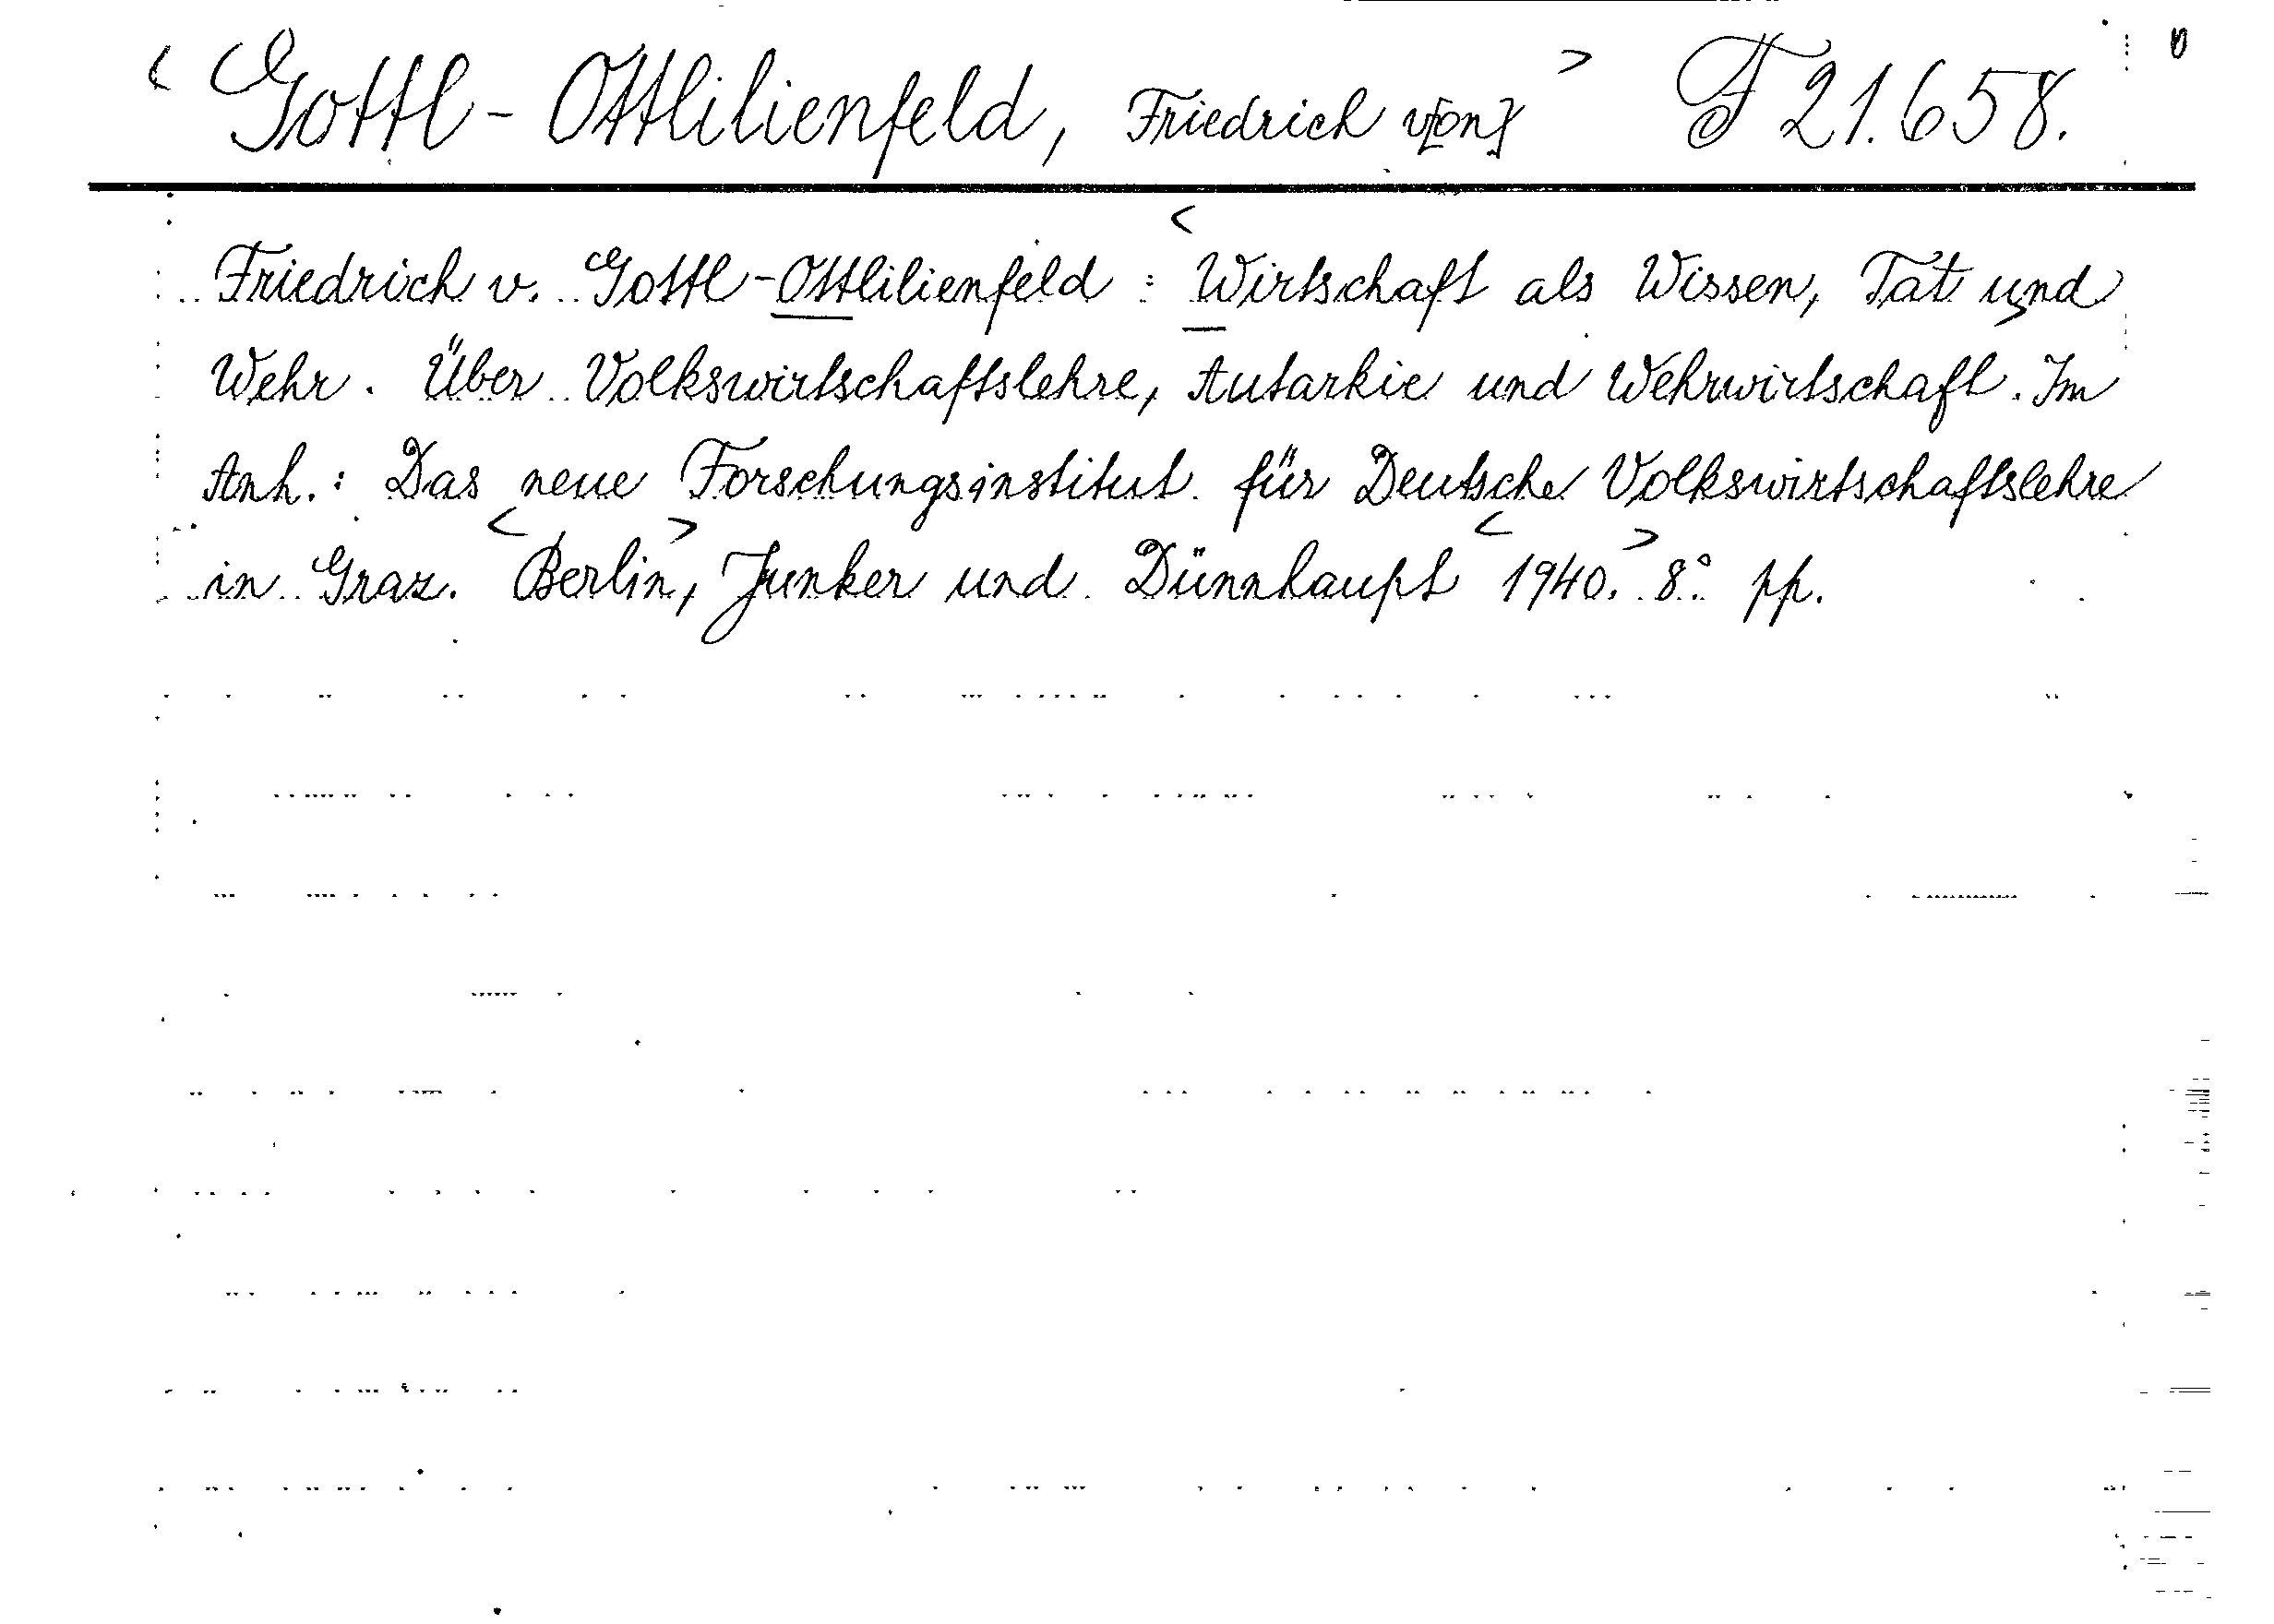 < Gottl-Ottlilienfeld, Friedrich v[on] > F 21.658.
Friedrich v. Gottl-Ottlilienfeld : < Wirtschaft als Wissen, Tat und
Wehr. > Über Volkswirtschaftslehre, Autarkie und Wehrwirtschaft. Im
Anh.: Das neue Forschungsinstitut für Deutsche Volkswirtschaftslehre
in Graz. < Berlin >, Junker und Dünnhaupt < 1940. > 8° pp.